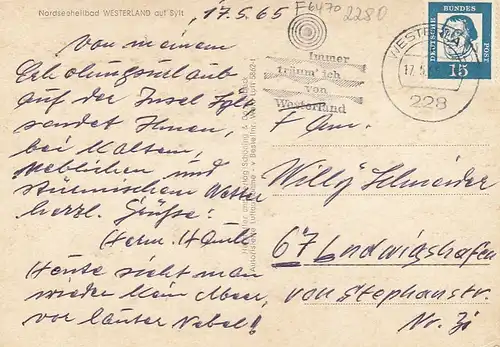 Nordseeheilbad WESTERLAND auf Sylt
17.5.65
F6470
2280
Von meinem
Erholungsurlaub
auf der Insel Sylt
sendet Ihnen,
bei Kaltem,
neblichen und
stürmischem Wetter
herzl. Grüße:
Herm.
Heute sieht man
wieder kein Meer,
vor lauter Nebel!
Immer
träum' ich
von
Westerland
WESTERLAND
17.5.
228
DEUTSCHE BUNDESPOST
15
Fam.
Willy Schneider
67 Ludwigshafen
von Stephanstr.
Nr.